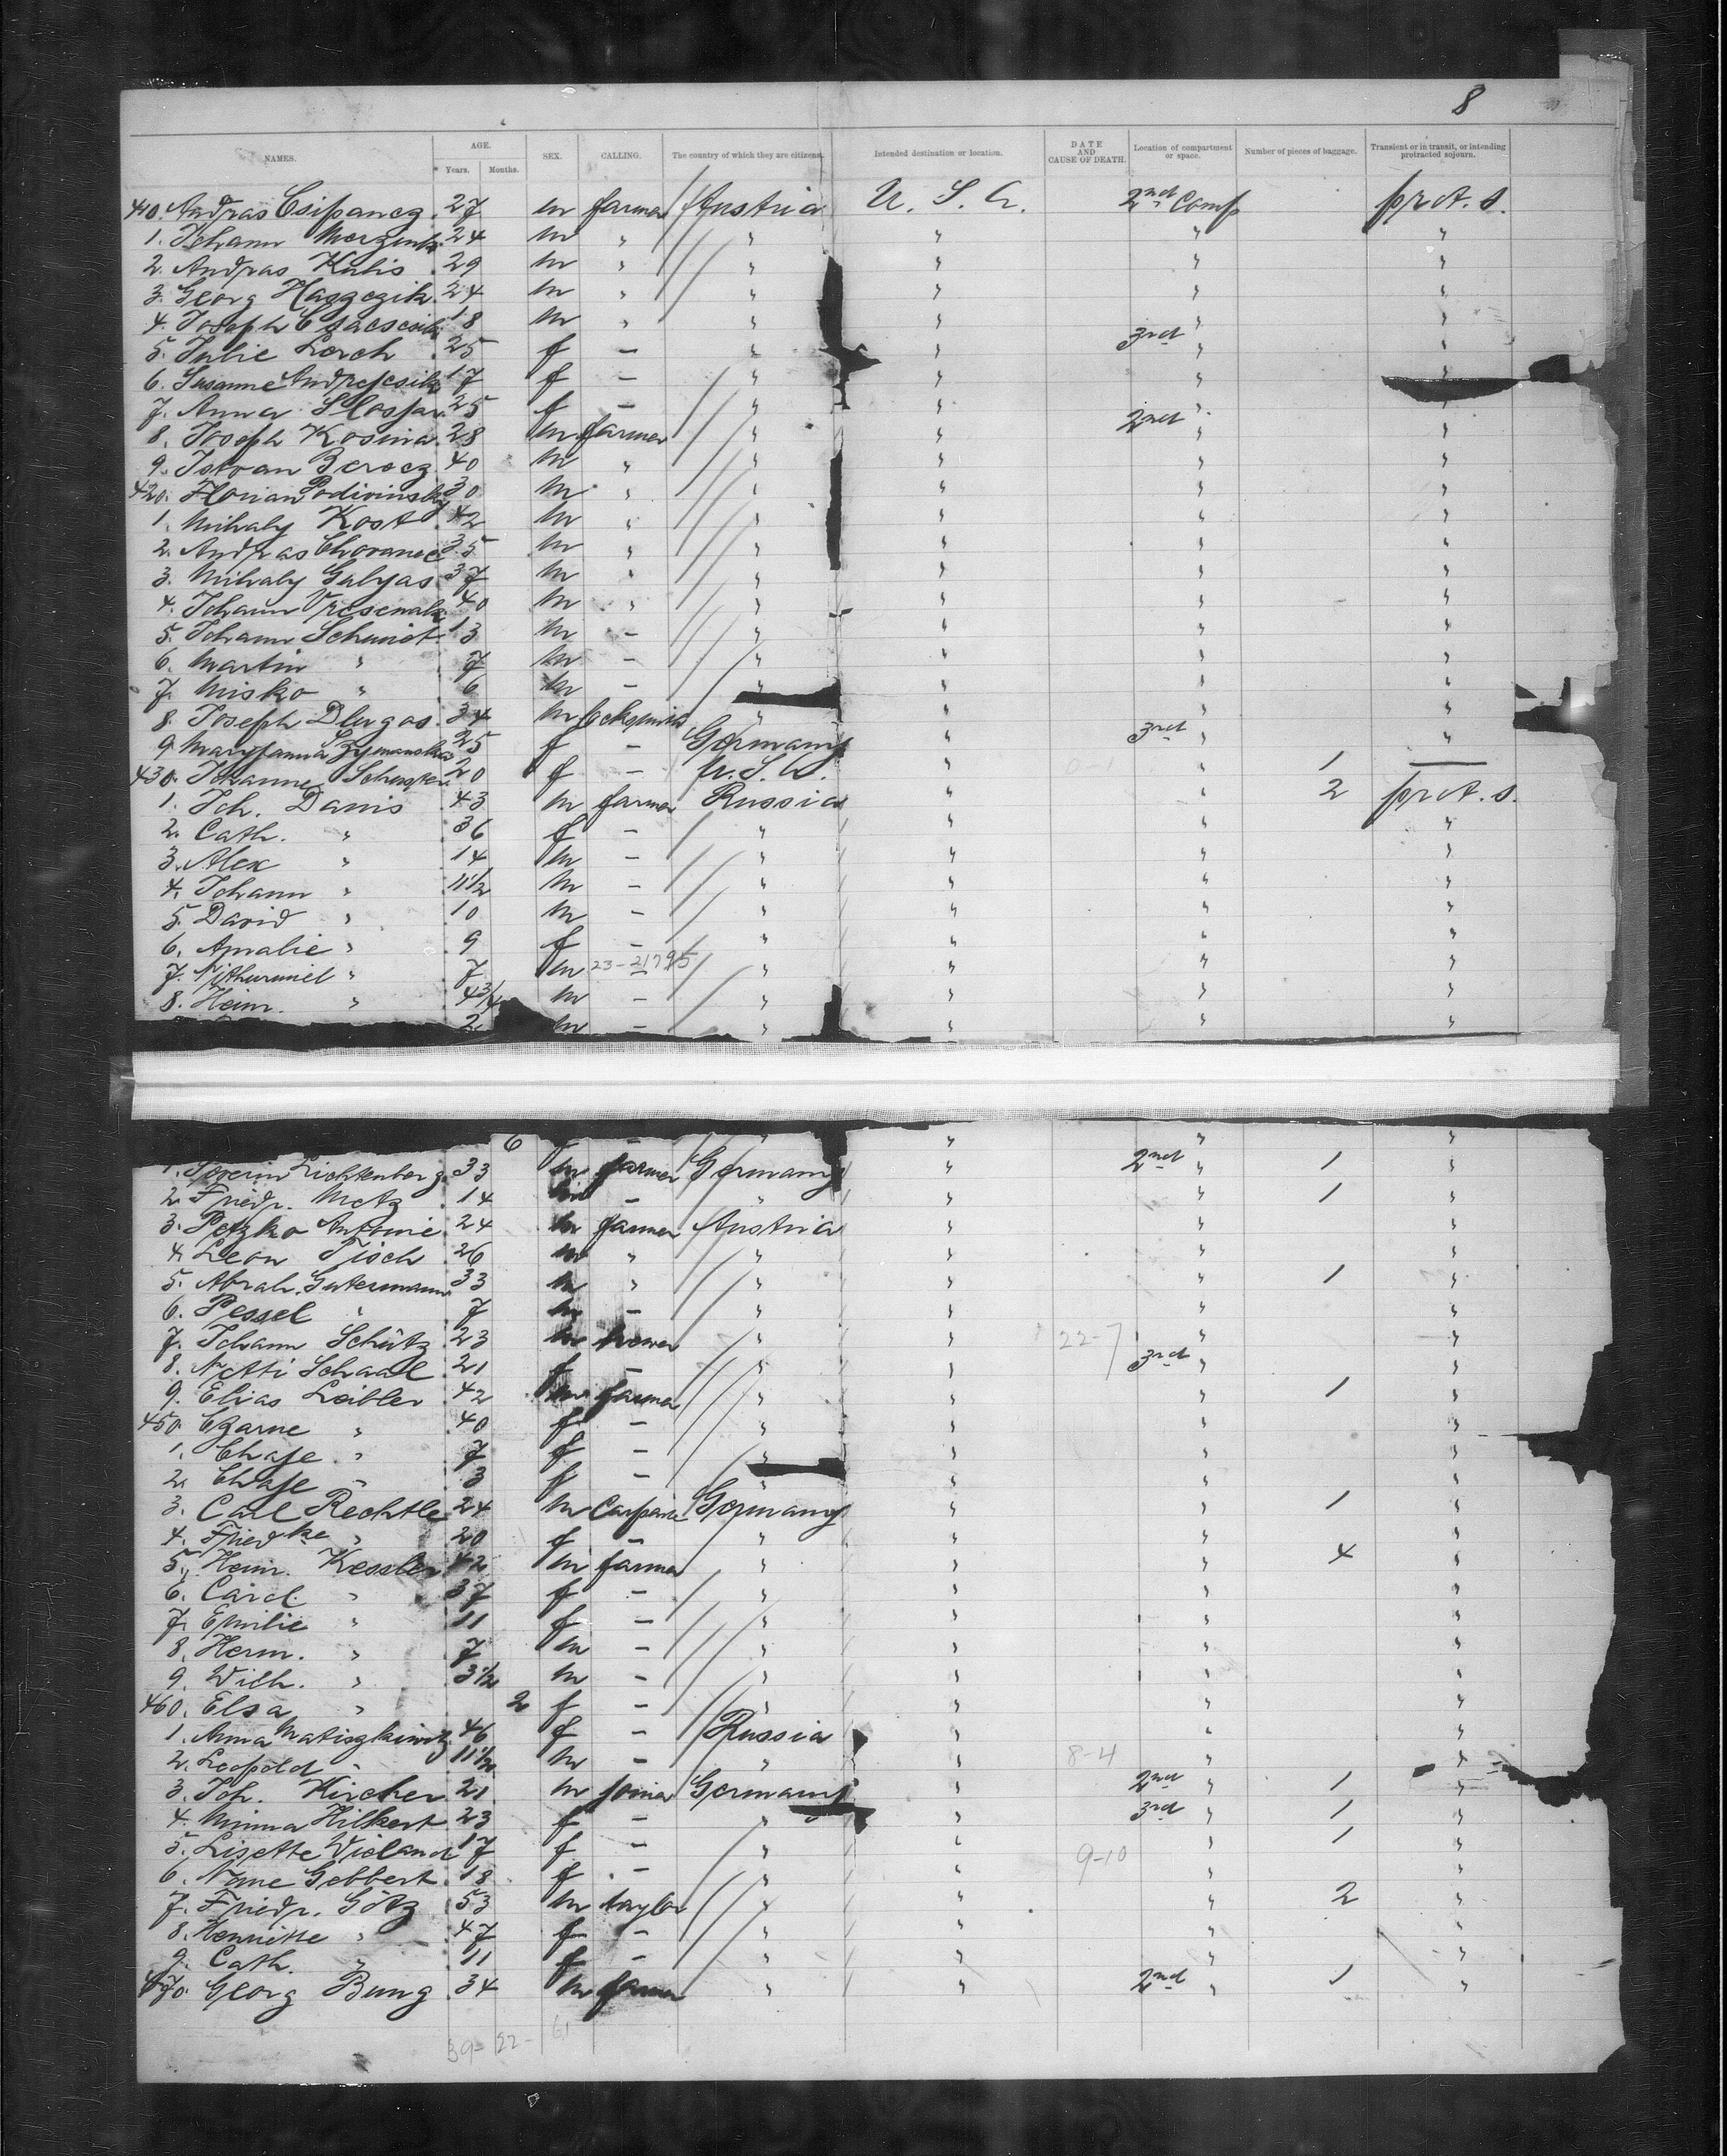 8
NAMES. AGE. Years. Months. SEX. CALLING. The country of which they are citizens. Intended destination or location. DATE AND CAUSE OF DEATH. Location of compartment or space. Number of pieces of baggage. Transient or in transit, or intending protracted sojourn.
410. Andras Csipanez 27 m farmer Austria U. S. A. 2nd Comp prot. s.
1. Johann 24 m " " " " "
2. Andras Kulis 29 m " " " " "
3. Georg Haszczik 24 m " " " " "
4. Joseph 18 m " " " " "
5. Julie Lerch 25 f — " " 3rd " "
6. Susanne Andrejcsik 17 f — " " " "
7. Anna 25 f — " " " "
8. Joseph Kosina 28 m farmer " " 2nd " "
9. Istvan Berecz 40 m " " " " "
420. Florian Podivinsky 30 m " " " " "
1. Mihaly Kost 42 m " " " " "
2. Andras Chovanec 35 m " " " " "
3. Mihaly Galyas 37 m " " " " "
4. Johann 40 m " " " " "
5. Johann Schmidt 13 m — " " " "
6. Martin " 7 m — " " " "
7. Misko " 6 m — " " " "
8. Joseph Dlugos 34 m locksmith " " " "
9. Maryanna Szymanska 25 f — Germany " 3rd " "
430. Johanne Schuster 20 f — U. S. A. " " 1 —
1. Joh. Danis 43 m farmer Russia " " 2 prot. s.
2. Cath. " 36 f — " " " "
3. Alex " 14 m — " " " "
4. Johann " 11 1/2 m — " " " "
5. David " 10 m — " " " "
6. Amalie " 9 f — " " " "
7. " 7 m 23-21795 — " " " "
8. Heinr. " 4 3/4 m — " " " "
2 m — " " " "
6 — " " " "
1. Severin Lichtenberg 33 m farmer Germany " 2nd " 1 "
2. Friedr. Metz 14 m — " " " 1 "
3. Petzko Antonie 24 m farmer Austria " " "
4. Leon Tisch 26 m " " " " "
5. Abrah. Gutermann 33 m " " " " 1 "
6. Pessel " 7 m — " " " "
7. Johann Schütz 23 m brewer " " 22-7 " "
8. Netti Schaal 21 f — " " 3rd " "
9. Elias Leibler 42 m farmer " " " 1 "
450. Czarne " 40 f — " " " "
1. Chaje " 7 f — " " " "
2. Chaje " 3 f — " " " "
3. Carl Rechtle 24 m Germany " " 1 "
4. Friedke " 20 f — " " " "
5. Heinr. Kessler 42 m farmer " " " 4 "
6. Carol. " 37 f — " " " "
7. Emilie " 11 f — " " " "
8. Herm. " 7 m — " " " "
9. Wilh. " 3 1/2 m — " " " "
460. Elsa " 2 f — " " " "
1. Anna Matiszkiewitz 46 f — Russia " " "
2. Leopold " 11 1/2 m — " " 8-4 " "
3. Joh. Kircher 21 m joiner Germany " 2nd " 1 "
4. Minna Hilkert 23 f — " " 3rd " 1 "
5. Lisette Wieland 17 f — " " " 1 "
6. Nane Gebbert 18 f — " " 9-10 " "
7. Friedr. Götz 53 m taylor " " " 2 "
8. Henriette " 47 f — " " " "
9. Cath. " 11 f — " " " "
470. Georg Bung 34 m farmer " " 2nd " 1 "
39- 22- 61